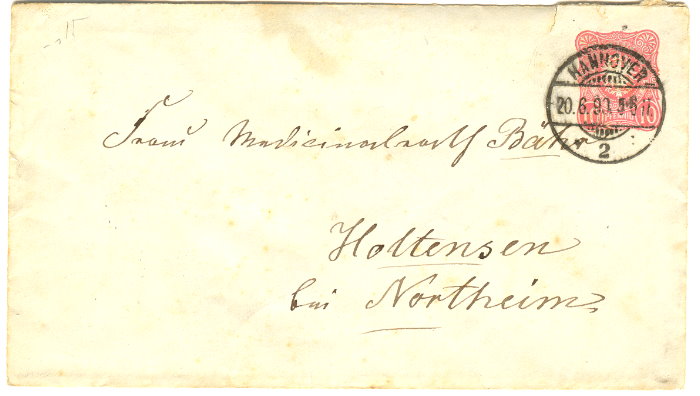 HANNOVER
20.6.93.
2
10
Frau Medicinalrath Bähr
Holtensen
bei Northeim